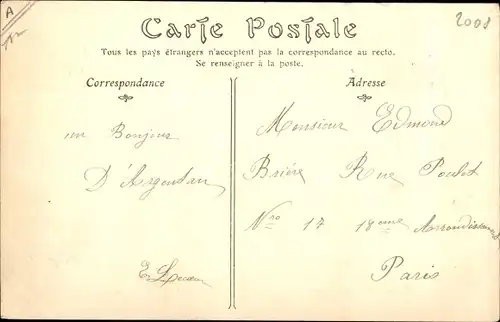 A
2008
Carte Postale
Tous les pays étrangers n'acceptent pas la correspondance au recto.
Se renseigner à la poste.
Correspondance
un Bonjour
D'Argentan
Adresse
Monsieur Edmond
Brière Rue Poulet
Nro 17 18eme Arrondissement
Paris